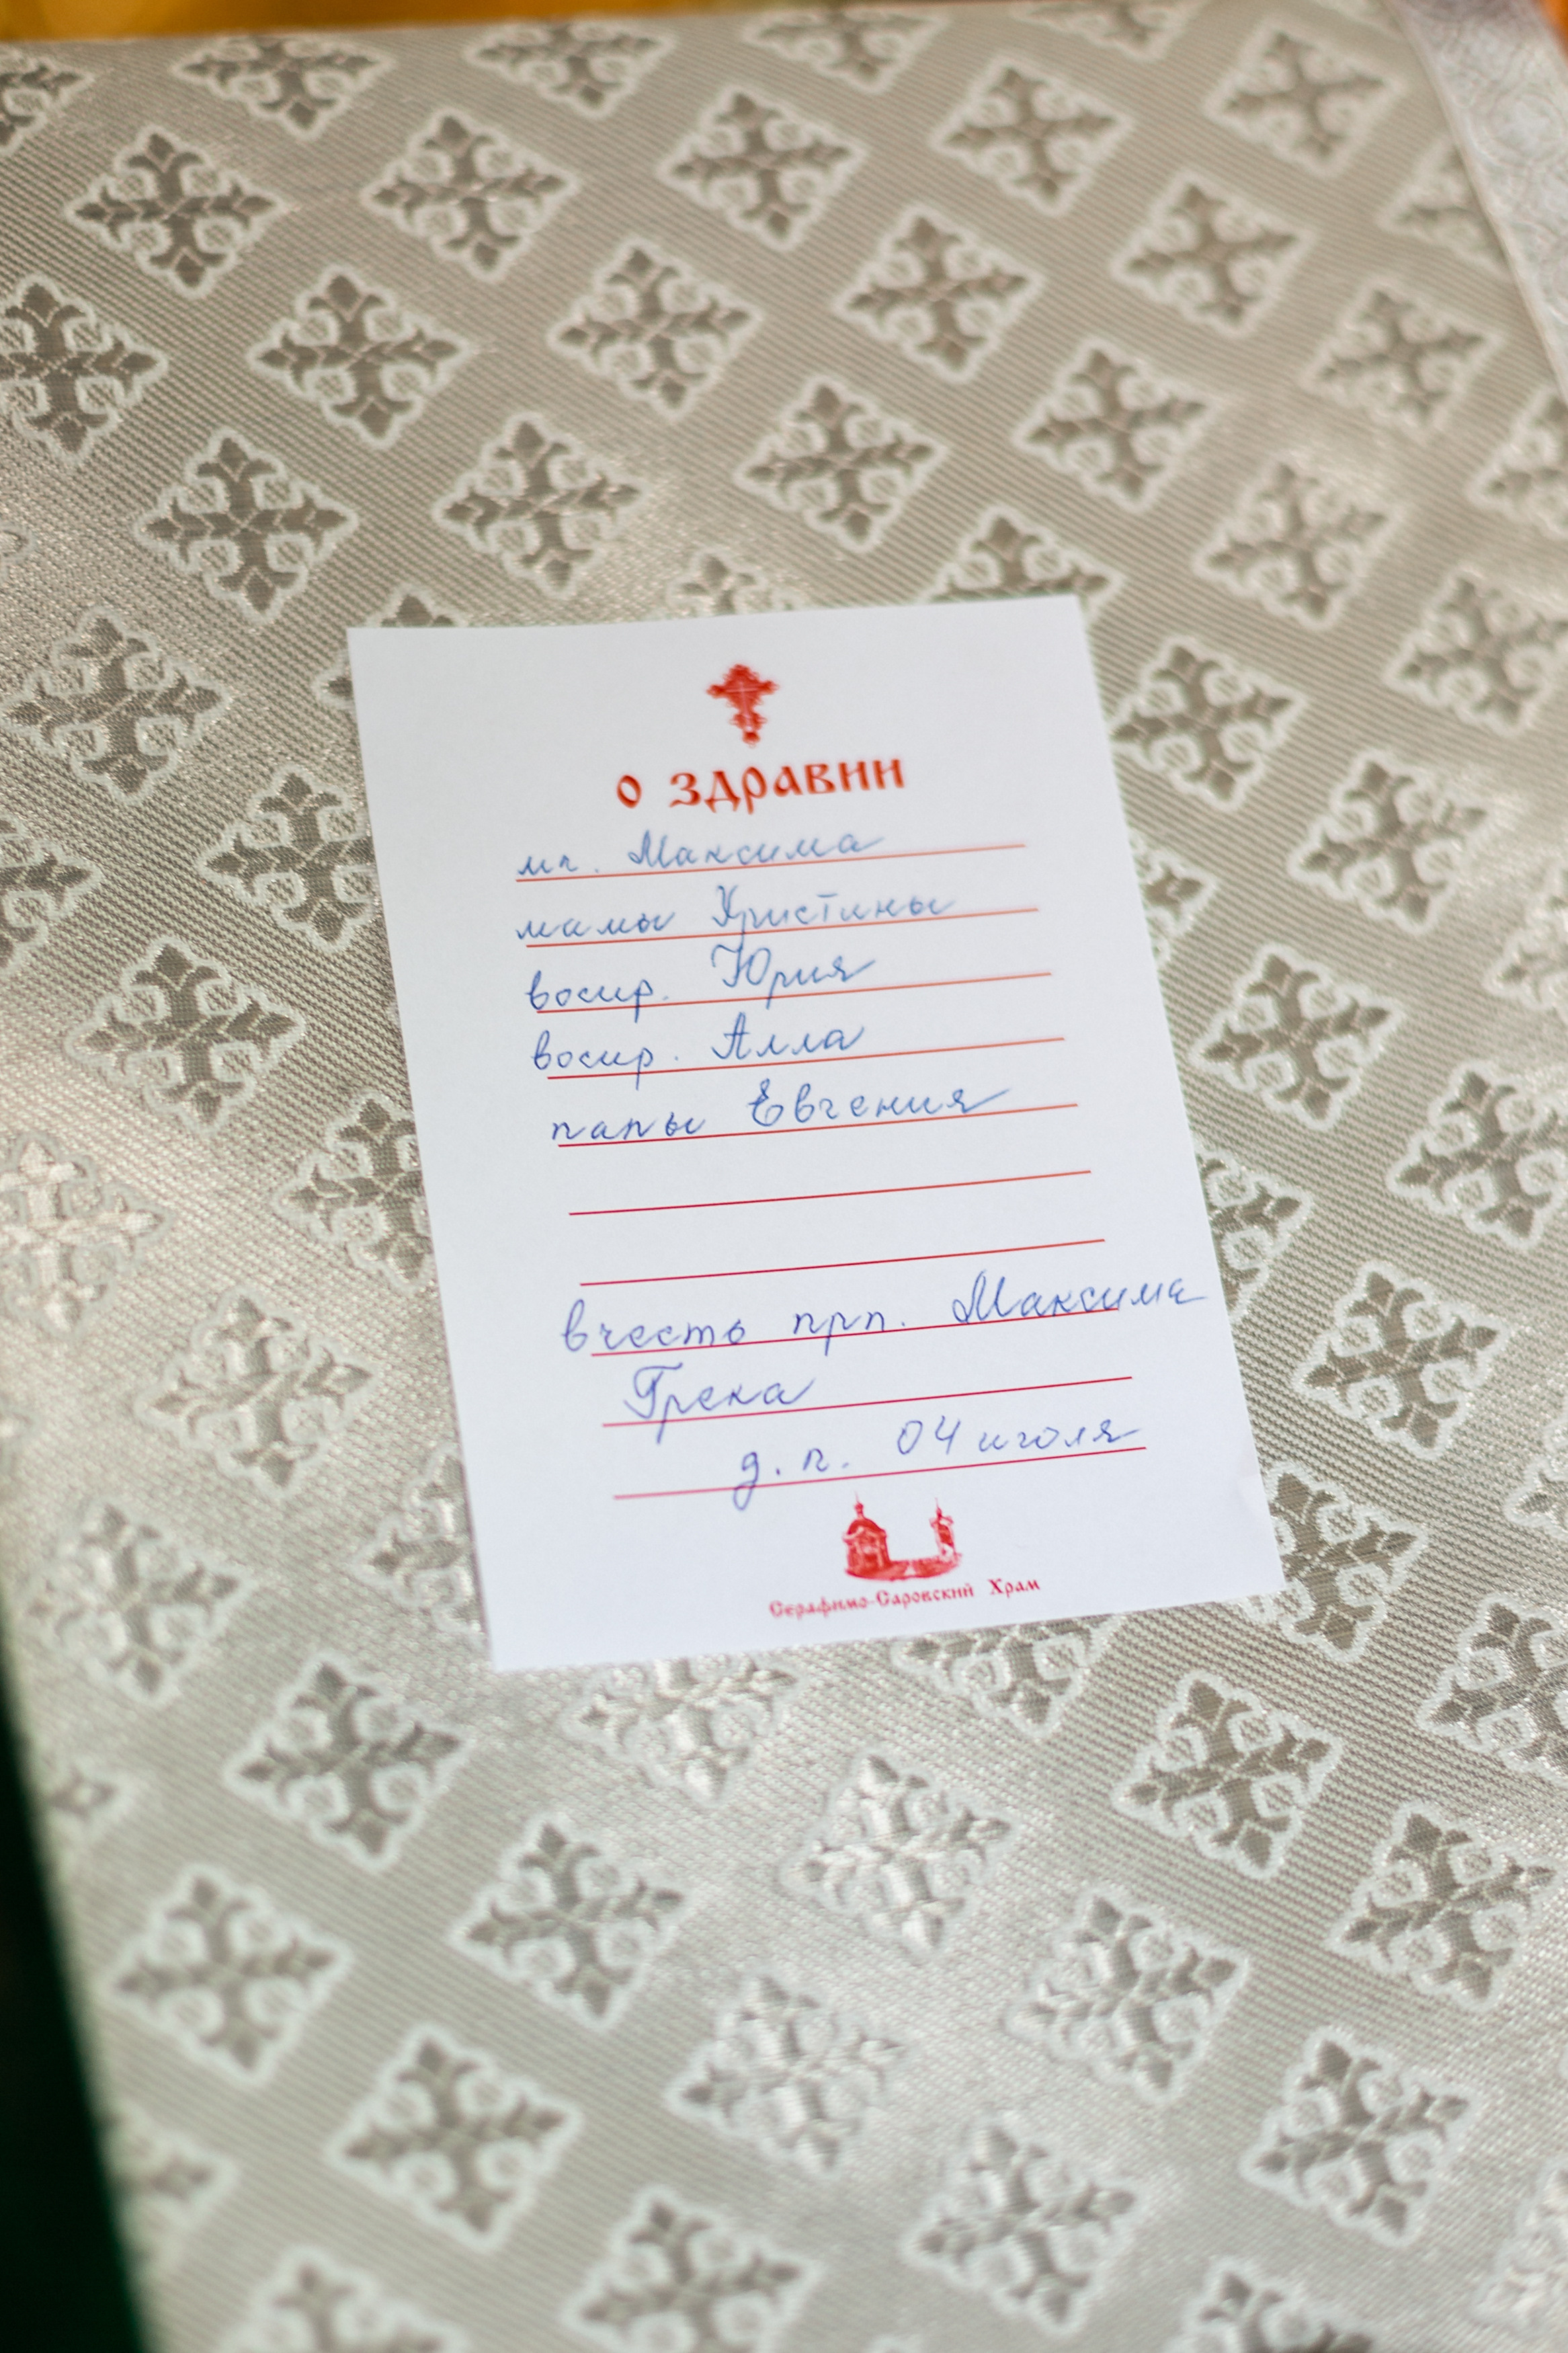 О ЗДРАВИИ
мл. Максима
мамы Христины
воспр. Юрия
воспр. Алла
папы Евгения
в честь прп. Максима
Грека
д. п. 04 июля
Серафимо-Саровский Храм